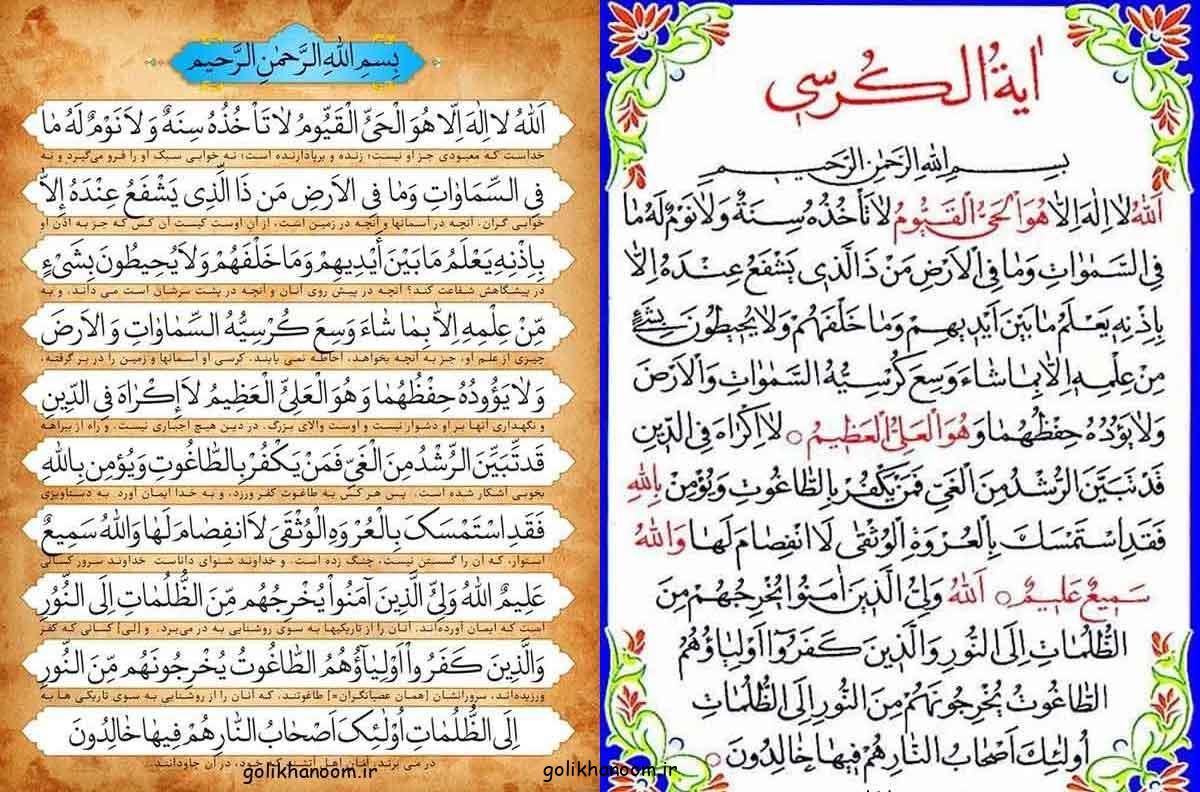 بِسمِ اللهِ الرَّحمٰنِ الرَّحیم
اَللهُ لا اِلٰهَ اِلّا هُوَ الْحَیُّ الْقَیُّومُ لا تَأْخُذُهُ سِنَةٌ وَ لا نَوْمٌ لَهُ مَا
خداست که معبودی جز او نیست؛ زنده و برپادارنده است؛ نه خوابی سبک او را فرو می‌گیرد و نه
فِی السَّمَاوَاتِ وَمَا فِی الاَرضِ مَن ذَا الَّذِی یَشْفَعُ عِنْدَهُ اِلاَّ
خوابی گران. آنچه در آسمانها و آنچه در زمین است، از آنِ اوست کیست آن کس که جز به اذن او
بِاِذْنِهِ یَعْلَمُ مَا بَیْنَ أَیْدِیهِمْ وَمَا خَلْفَهُمْ وَلاَ یُحِیطُونَ بِشَیْءٍ
در پیشگاهش شفاعت کند؟ آنچه در پیش روی آنان و آنچه در پشت سرشان است می داند. و به
مِّنْ عِلْمِهِ اِلاَّ بِمَا شَاءَ وَسِعَ کُرْسِیُّهُ السَّمَاوَاتِ وَ الاَرضَ
چیزی از علم او، جز به آنچه بخواهد، احاطه نمی یابند. کرسی او آسمانها و زمین را در بر گرفته،
وَلاَ یَؤُودُهُ حِفْظُهُمَا وَ هُوَ الْعَلِیُّ الْعَظِیمُ لاَ إِکْرَاهَ فِی الدِّینِ
و نگهداری آنها بر او دشوار نیست و اوست والای بزرگ. در دین هیچ اجباری نیست. و راه از بیراهه
قَد تَّبَیَّنَ الرُّشْدُ مِنَ الْغَیِّ فَمَنْ یَکْفُرْ بِالطَّاغُوتِ وَ یُؤمِن بِاللهِ
بخوبی آشکار شده است. پس هر کس به طاغوت کفر ورزد، و به خدا ایمان آورد به دستاویزی
فَقَدِ اسْتَمْسَکَ بِالْعُرْوَهِ الْوُثْقَیَ لاَ انفِصَامَ لَهَا وَاللهُ سَمِیعٌ
استوار، که آن را گسستن نیست، چنگ زده است. و خداوند شنوای داناست خداوند سرور کسانی
عَلِیمٌ اللهُ وَلِیُّ الَّذِینَ آمَنُواْ یُخْرِجُهُم مِّنَ الظُّلُمَاتِ اِلَی النُّوُرِ
است که ایمان آورده‌اند. آنان را از تاریکیها به سوی روشنایی به در می‌برد. و [لی] کسانی که کفر
وَالَّذِینَ کَفَرُواْ اَوْلِیَآؤُهُمُ الطَّاغُوتُ یُخْرِجُونَهُم مِّنَ النُّورِ
ورزیده‌اند، سرورانشان [همان عصیانگران=] طاغوتند، که آنان را از روشنایی به سوی تاریکی ها به
اِلَی الظُّلُمَاتِ اُوْلَئِکَ اَصْحَابُ النَّارِ هُمْ فِیهَا خَالِدُونَ
در می برند. آنان اهل آتشند که خود، در آن جاودانند..
golikhanoom.ir
اٰیةُ الکُرسی
بِسمِ اللهِ الرَّحمٰنِ الرَّحیم
اَللهُ لا اِلٰهَ اِلّا هُوَ الْحَیُّ الْقَیُّومُ لا تَأْخُذُهُ سِنَةٌ وَلا نَوْمٌ لَهُ ما
فِی السَّمٰوٰاتِ وَما فِی الْاَرْضِ مَنْ ذَا الَّذی یَشْفَعُ عِنْدَهُ اِلّا
بِاِذْنِهِ یَعْلَمُ ما بَیْنَ اَیْدیهِمْ وَما خَلْفَهُمْ وَلا یُحیطُونَ بِشَیْءٍ
مِنْ عِلْمِهِ اِلّا بِما شاءَ وَسِعَ کُرْسِیُّهُ السَّمٰوٰاتِ وَالْاَرْضَ
وَلا یَؤُدُهُ حِفْظُهُما وَهُوَ الْعَلِیُّ الْعَظیمُ ○ لا اِکْراهَ فِی الدّینِ
قَدْ تَبَیَّنَ الرُّشْدُ مِنَ الْغَیِّ فَمَنْ یَکْفُرْ بِالطّاغُوتِ وَیُؤْمِنْ بِاللهِ
فَقَدِ اسْتَمْسَكَ بِالْعُرْوَةِ الْوُثْقیٰ لَا انْفِصامَ لَها وَاللهُ
سَمیعٌ عَلیمٌ ○ اَللهُ وَلِیُّ الَّذینَ اٰمَنُوا یُخْرِجُهُمْ مِنَ
الظُّلُماتِ اِلَی النُّورِ وَالَّذینَ کَفَرُوا اَوْلِیاؤُهُمُ
الطّاغُوتُ یُخْرِجُونَهُمْ مِنَ النُّورِ اِلَی الظُّلُماتِ
اُولٰئِكَ اَصْحابُ النّارِ هُمْ فیها خالِدُونَ ○
golikhanoom.ir